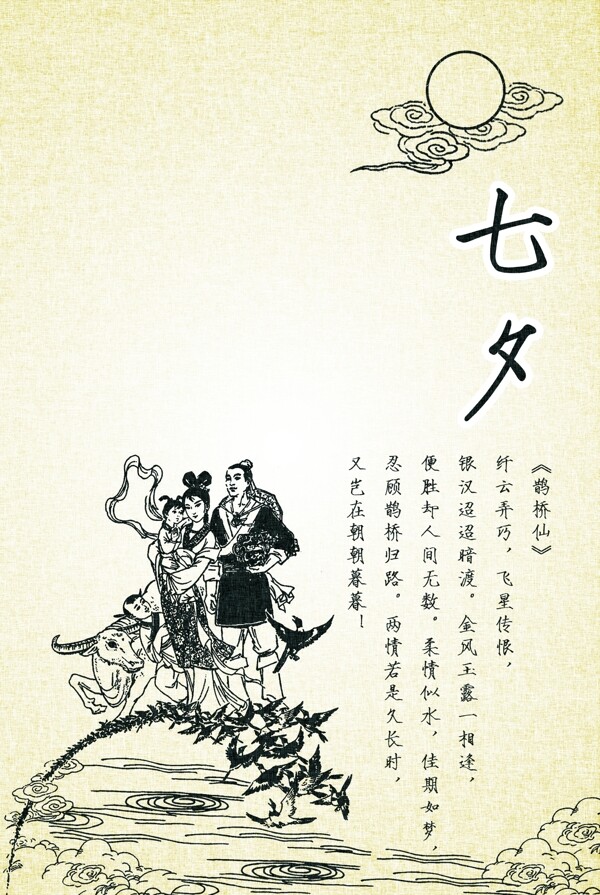 七夕
《鹊桥仙》
纤云弄巧，飞星传恨，
银汉迢迢暗渡。金风玉露一相逢，
便胜却人间无数。柔情似水，佳期如梦，
忍顾鹊桥归路。两情若是久长时，
又岂在朝朝暮暮！